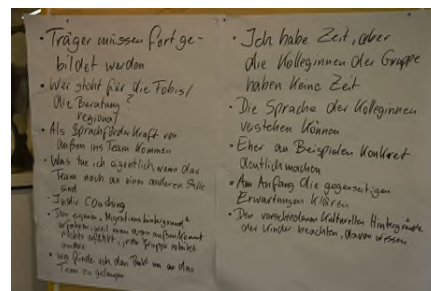 • Träger müssen fortge-
bildet werden
• Wer steht für die Fobis/
die Beratung?
regional
• Als Sprachförderkraft von
außen ins Team kommen
• Was tue ich eigentlich wenn das
Team noch an einer anderen Stelle
sind
Coaching
• Den eigenen "Migrationshintergrund"
weil man von außen kommt
jede Gruppe arbeitet
anders
• Wo finde ich den Punkt um an das
Team zu gelangen
• Ich habe Zeit, aber
die Kolleginnen der Gruppe
haben keine Zeit
• Die Sprache der Kolleginnen
verstehen können
• Eher an Beispielen konkret
deutlich machen
• Am Anfang die gegenseitigen
Erwartungen klären
• Den verschiedenen kulturellen Hintergründe
der Kinder beachten, davon wissen